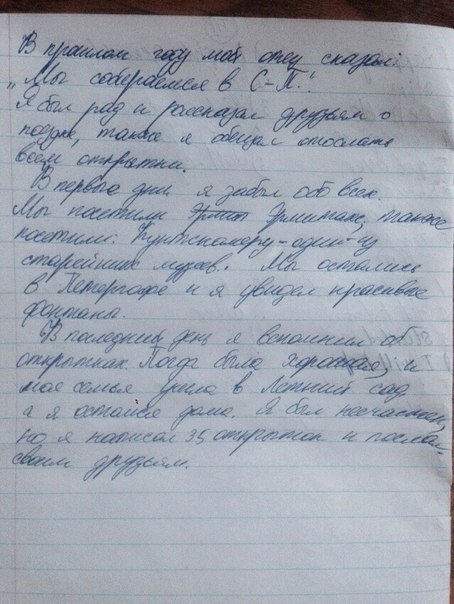 В прошлом году мой отец сказал:
"Мы собираемся в С-П."
Я был рад и рассказал друзьям о
поездке, также я обещал отослать
всем открытки.
В первые дни я забыл обо всех.
Мы посетили Эрмитаж, также
посетили: Кунтскамеру-один-из
старейших музеев. Мы остались
в Петергофе и я увидел красивые
фонтаны.
В последний день я вспомнил об
открытках. Погода была хорошая, и
моя семья ушла в Летний сад
а я остался дома. Я был несчастен,
но я написал 35 открыток и послал
своим друзьям.